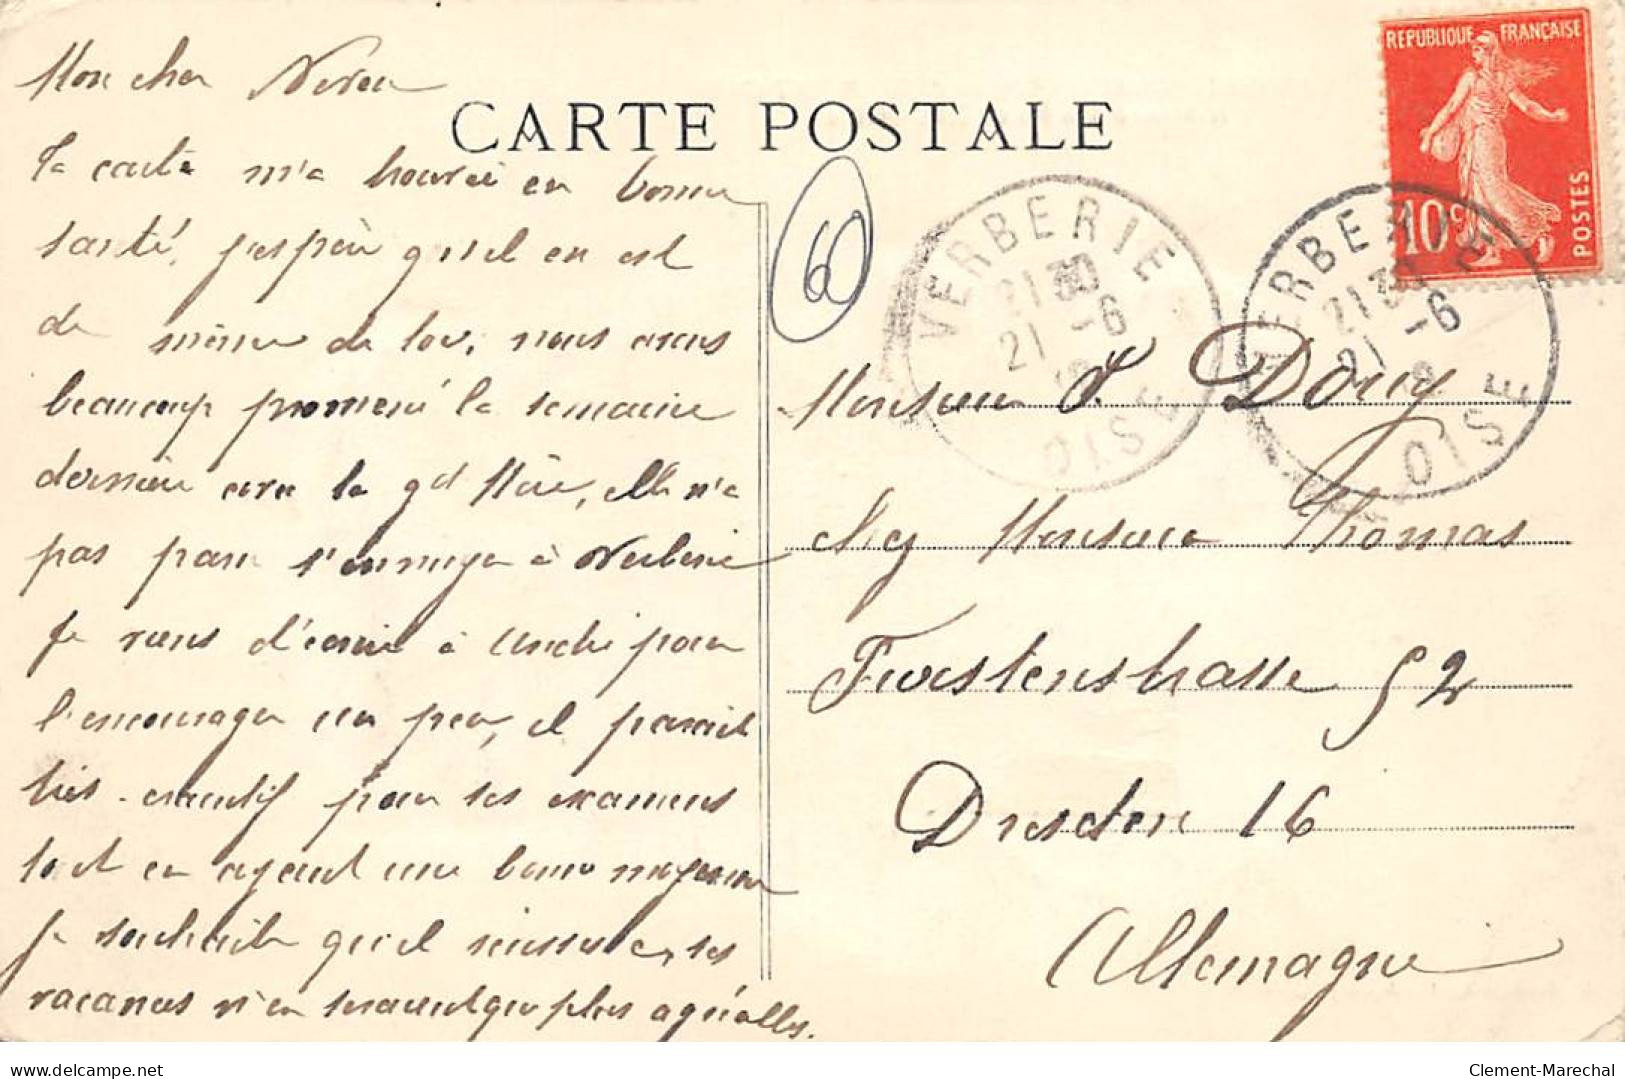 Mon cher Neveu
CARTE POSTALE
REPUBLIQUE FRANÇAISE
10c POSTES
Ta carte m'a trouvée en bonne
santé, j'espère qu'il en est
de même de toi, nous avons
beaucoup promené la semaine
dernière avec ta gd Mère, elle n'a
pas paru s'ennuyer à Verberie
Je viens d'écrire à André pour
l'encourager un peu, il parait
très craintif pour ses examens
tout en ayant une bonne moyenne
Je souhaite qu'il réussisse, ses
vacances n'en seraient que plus agréables.
60
VERBERIE
21 30
21 -6
OISE
VERBERIE
21 30
21 -6
OISE
Monsieur Douy
chez Monsieur Thomas
Furstenstrasse 52
Dresden 16
Allemagne
www.delcampe.net
Clement-Marechal